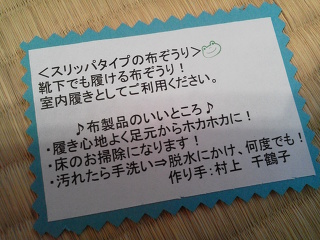 ＜スリッパタイプの布ぞうり＞
靴下でも履ける布ぞうり！
室内履きとしてご利用ください。
♪布製品のいいところ♪
・履き心地よく足元からホカホカに！
・床のお掃除になります！
・汚れたら手洗い⇒脱水にかけ、何度でも！
作り手：村上　千鶴子